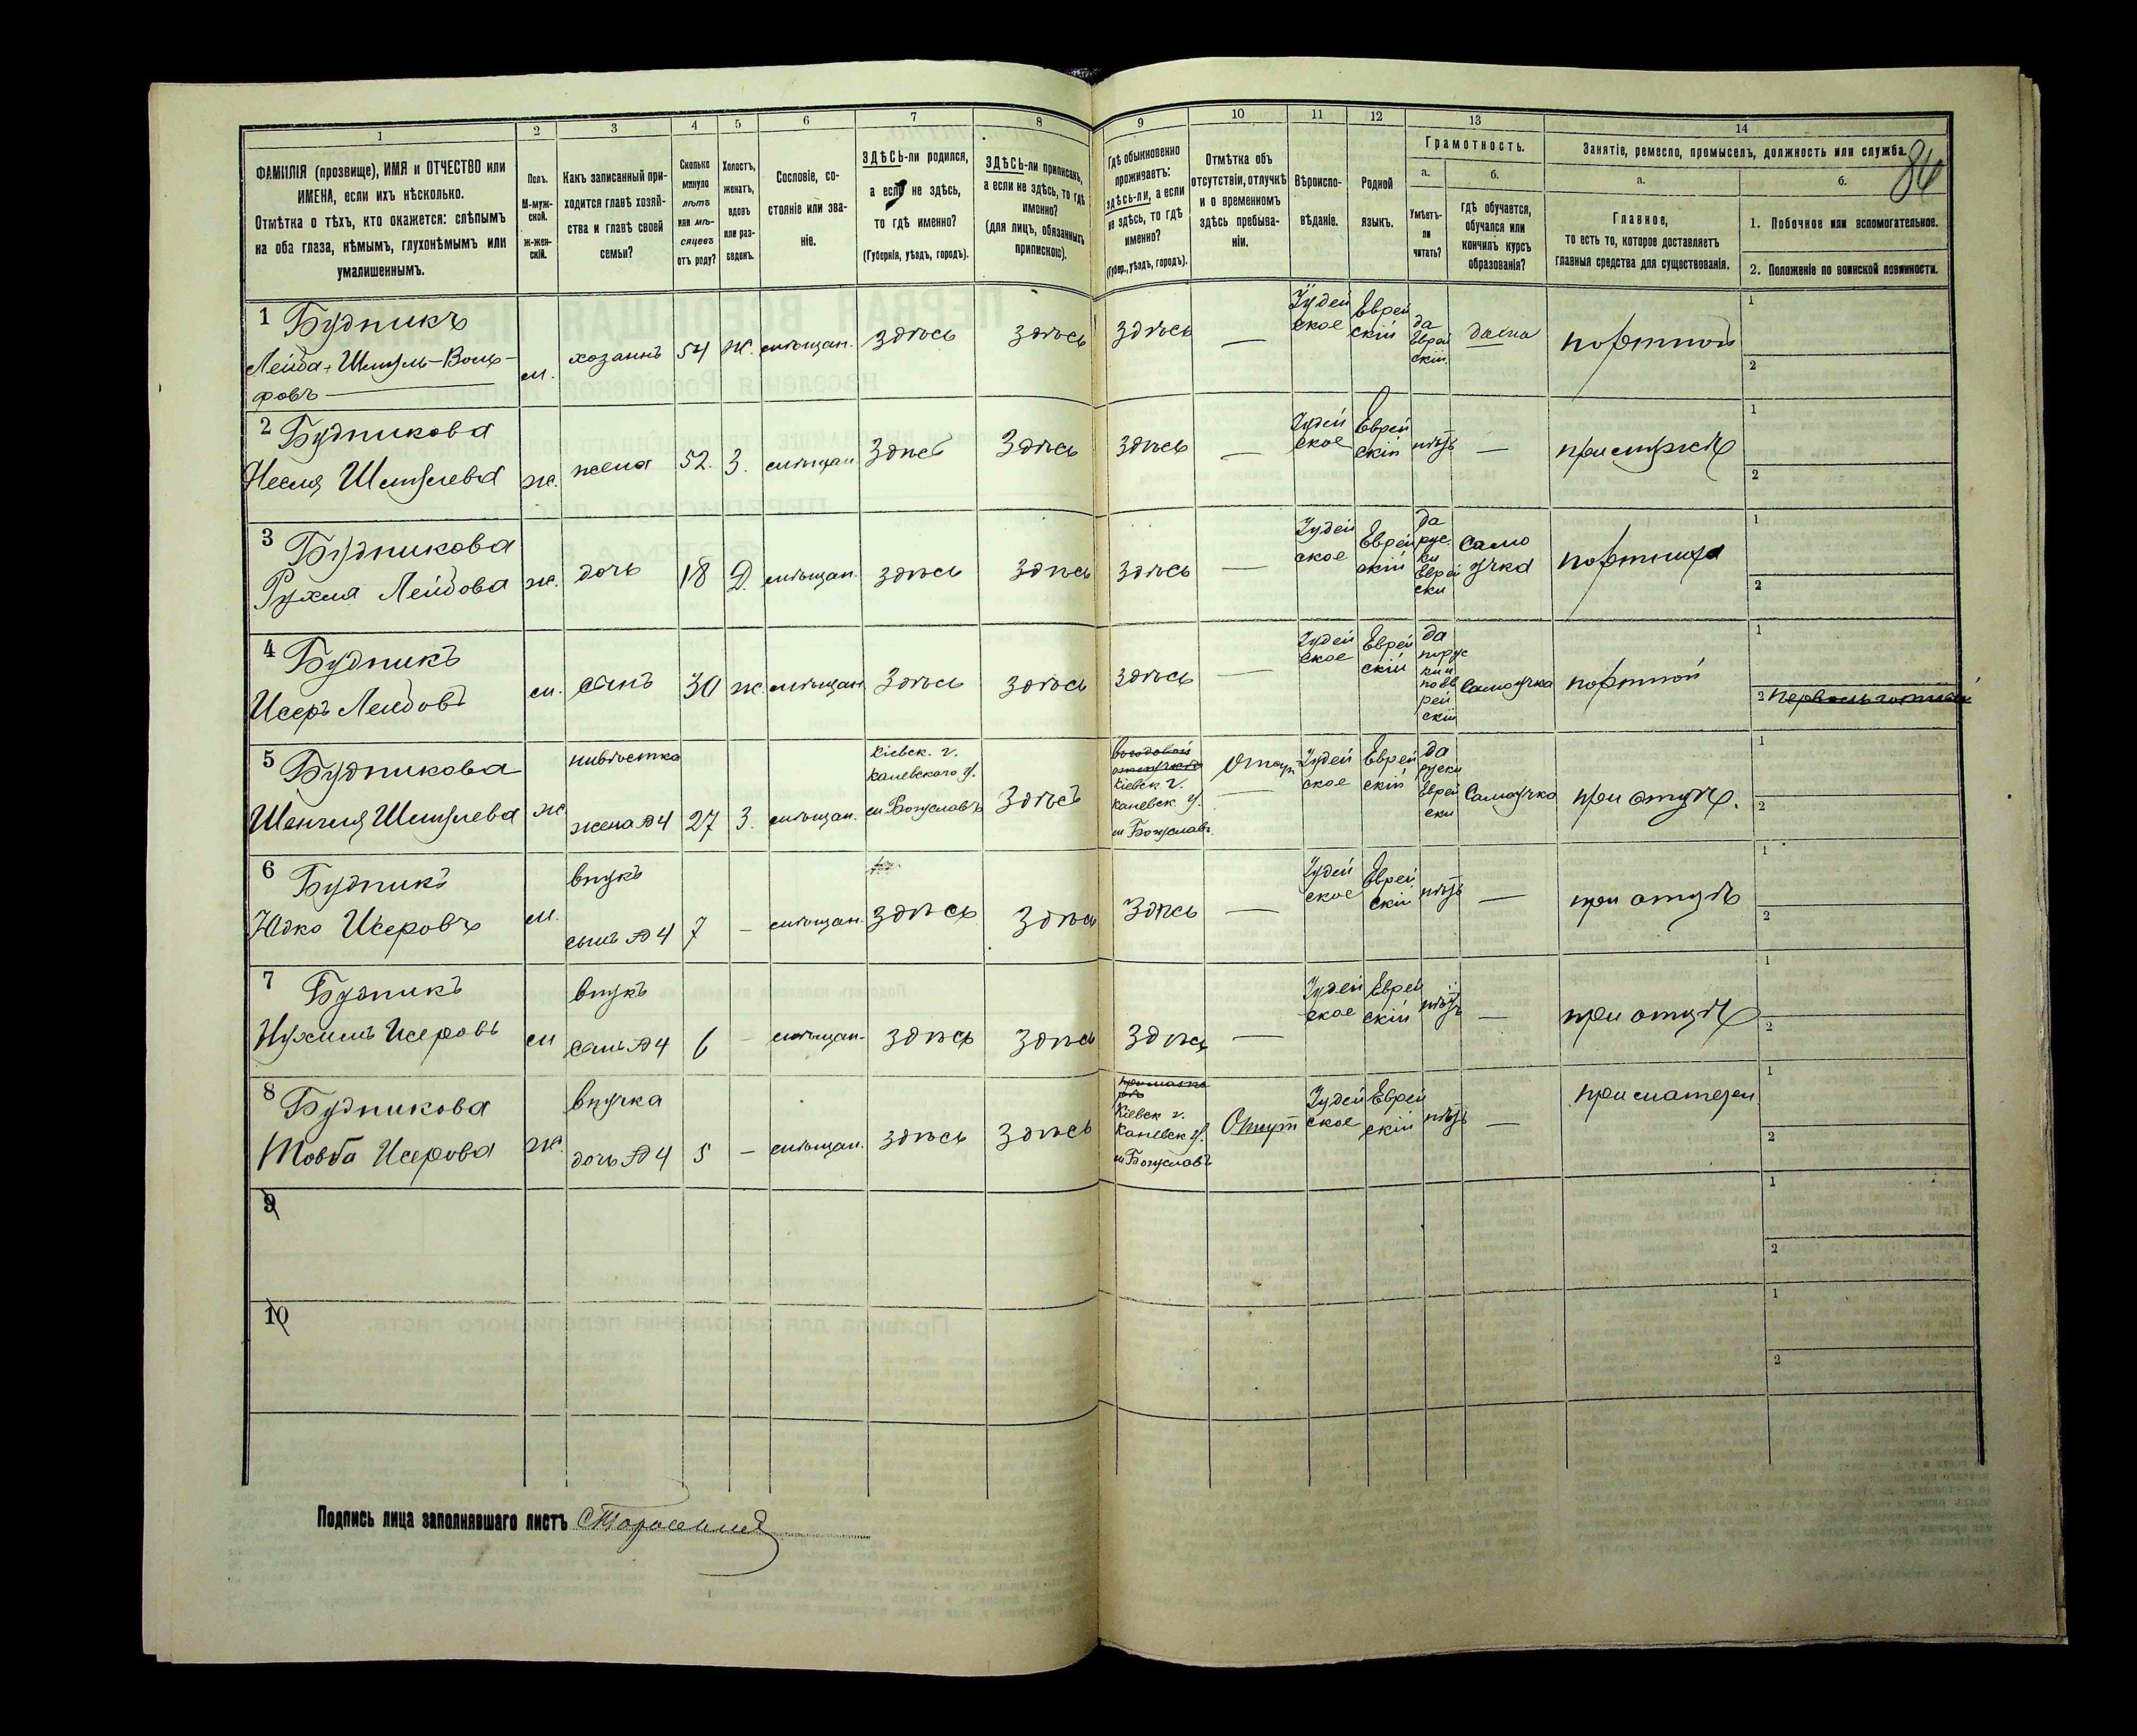 1 2 3 4 5 6 7 8 9 10 11 12 13 14
ФАМИЛІЯ (прозвище), ИМЯ и ОТЧЕСТВО или
ИМЕНА, если ихъ нѣсколько.
Отмѣтка о тѣхъ, кто окажется: слѣпымъ
на оба глаза, нѣмымъ, глухонѣмымъ или
умалишеннымъ.
Полъ.
М-муж-
ской.
Ж-жен-
скій.
Какъ записанный при-
ходится главѣ хозяй-
ства и главѣ своей
семьи?
Сколько
минуло
лѣтъ
или мѣ-
сяцевъ
отъ роду?
Холостъ,
женатъ,
вдовъ
или раз-
веденъ.
Сословіе, со-
стояніе или зва-
ніе.
ЗДѢСЬ-ли родился,
а если не здѣсь,
то гдѣ именно?
(Губернія, уѣздъ, городъ).
ЗДѢСЬ-ли приписанъ,
а если не здѣсь, то гдѣ
именно?
(для лицъ, обязанныхъ
припискою).
Гдѣ обыкновенно
проживаетъ:
здѣсь-ли, а если
не здѣсь, то гдѣ
именно?
(Губер., уѣздъ, городъ).
Отмѣтка объ
отсутствіи, отлучкѣ
и о временномъ
здѣсь пребыва-
ніи.
Вѣроиспо-
вѣданіе.
Родной
языкъ.
Грамотность.
а.
Умѣетъ-
ли
читать?
б.
Гдѣ обучается,
обучался или
кончилъ курсъ
образованія?
Занятіе, ремесло, промыселъ, должность или служба.
86
а.
Главное,
то есть то, которое доставляетъ
главныя средства для существованія.
б.
1. Побочное или вспомогательное.
2. Положеніе по воинской повинности.
1 Будникъ
Лейба-Шмуль-Воль-
фовъ
м. хозяинъ 54 Ж. мѣщан. здѣсь здѣсь здѣсь —
Іудей
ское
Еврей
скій
да
Еврей
скій
дома
портной
1
2
2 Будникова
Несия Шмулева
ж. жена 52. З. мѣщан здѣсь Здѣсь здѣсь —
Іудей
ское
Еврей
скій
нѣтъ — при мужѣ
1
2
3 Будникова
Рухля Лейбова
ж. дочь 18 Д. мѣщан. здѣсь здѣсь здѣсь —
Іудей
ское
Еврей
скій
да
рус
ки
Еврей
ски
Само
учка
портниха
1
2
4 Будникъ
Исеръ Лейбовъ
м. сынъ 30 ж мѣщан. Здѣсь здѣсь здѣсь —
Іудей
ское
Еврей
скій
да
порус
ки и
по Ев
рей
скій
Самоучка портной
1
2
5 Будникова
Шенгля Шмулева
ж
нивѣстка
жена № 4 27 З. мѣщан.
Кіевск. г.
Каневского у.
м Богуславъ
Здѣсь
Кіевск г.
каневск у.
м Богуславъ
Отлуч —
Іудей
ское
Еврей
скій
да
руски
Еврей
ски
Самоучка при отцѣ.
1
2
6 Будникъ
Юдко Исеровъ
м.
внукъ
сынъ № 4 7 — мѣщан. здѣсь здѣсь здѣсь —
Іудей
ское
Еврей
скій
нѣтъ — при отцѣ
1
2
7 Будникъ
Нухимъ Исеровъ
м
внукъ
сынъ № 4 6 — мѣщан. здѣсь здѣсь здѣсь —
Іудей
ское
Еврей
скій
нѣтъ — при отцѣ
1
2
8 Будникова
Товба Исерова
ж.
внучка
дочь № 4 5 — мѣщан. здѣсь здѣсь
Кіевск г.
Каневск у.
м Богуславъ
Іудей
ское
Еврей
скій
нѣтъ — при матери
1
2
9
1
2
10
1
2
Подпись лица заполнявшаго листъ